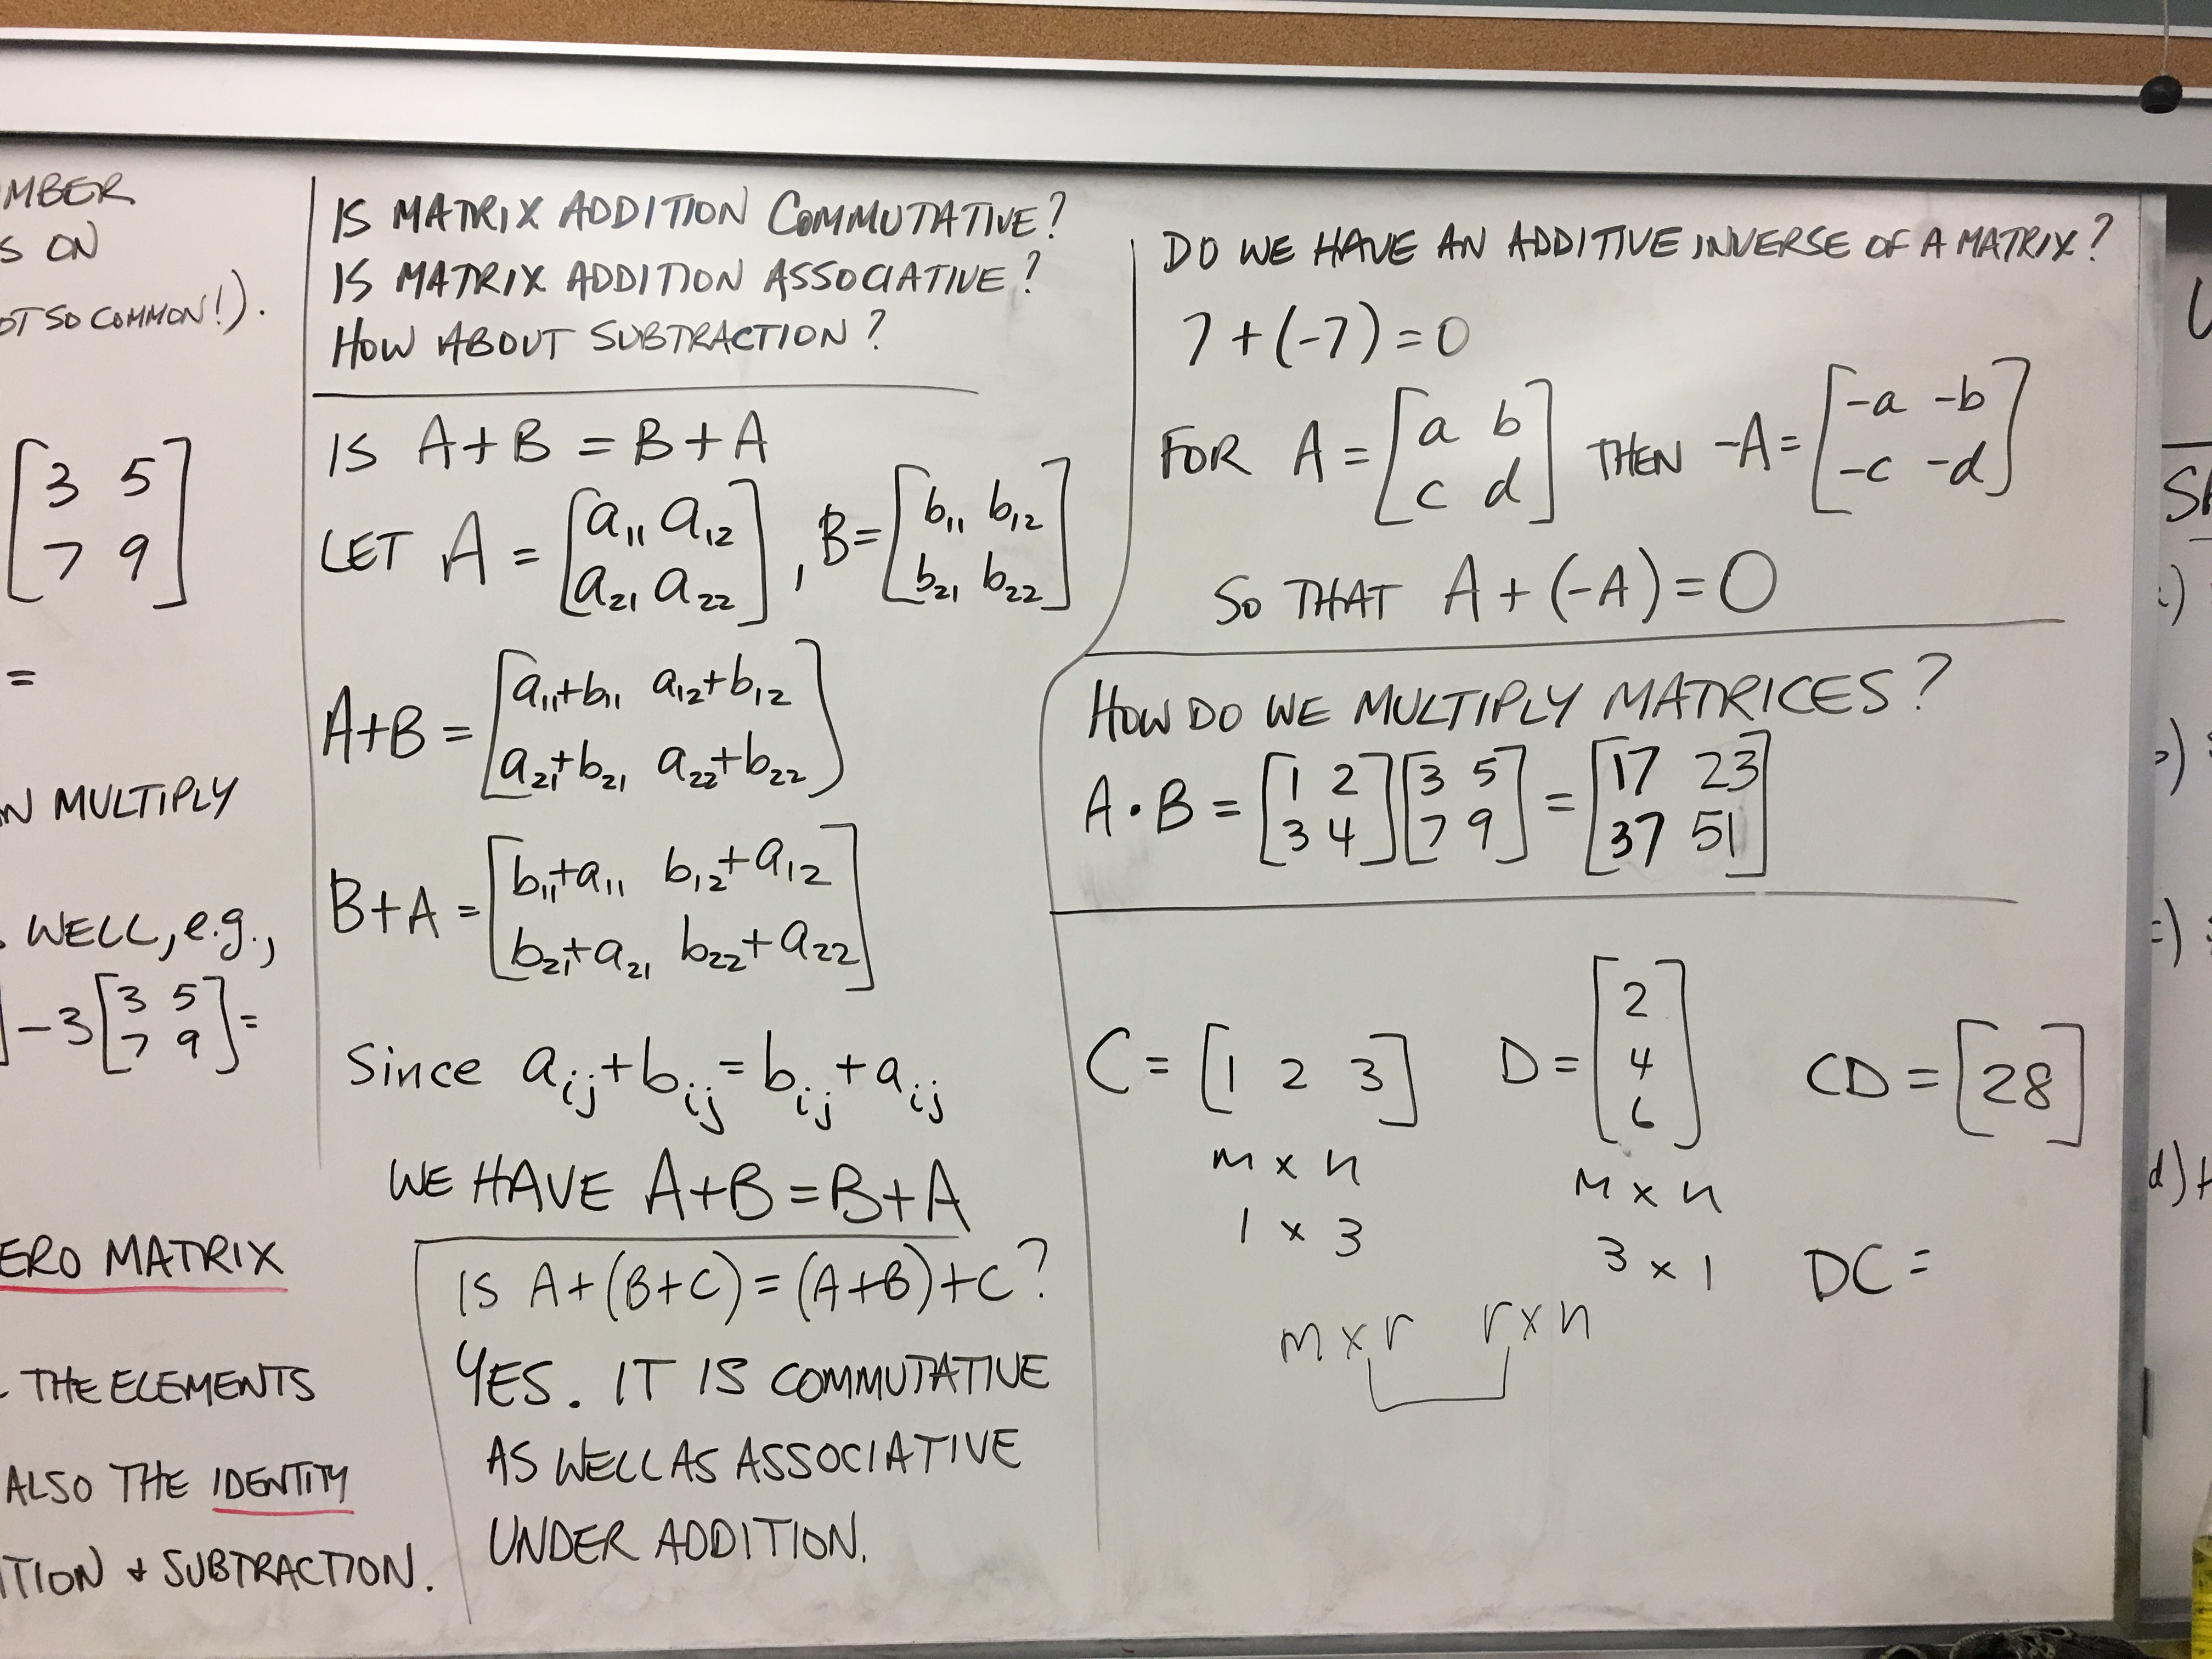 MBER
S ON
OT SO COMMON!).
[3 5
7 9]
=
N MULTIPLY
WELL, e.g.,
] -3 [3 5
7 9] =
ERO MATRIX
THE ELEMENTS
ALSO THE IDENTITY
ITION & SUBTRACTION.
IS MATRIX ADDITION COMMUTATIVE?
IS MATRIX ADDITION ASSOCIATIVE?
HOW ABOUT SUBTRACTION?
IS A+B = B+A
LET A = [a₁₁ a₁₂
a₂₁ a₂₂], B = [b₁₁ b₁₂
b₂₁ b₂₂]
A+B = [a₁₁+b₁₁ a₁₂+b₁₂
a₂₁+b₂₁ a₂₂+b₂₂]
B+A = [b₁₁+a₁₁ b₁₂+a₁₂
b₂₁+a₂₁ b₂₂+a₂₂]
Since a_ij + b_ij = b_ij + a_ij
WE HAVE A+B = B+A
IS A+(B+C) = (A+B)+C?
YES. IT IS COMMUTATIVE
AS WELL AS ASSOCIATIVE
UNDER ADDITION.
DO WE HAVE AN ADDITIVE INVERSE OF A MATRIX?
7 + (-7) = 0
FOR A = [a b
c d] THEN -A = [-a -b
-c -d]
SO THAT A + (-A) = O
HOW DO WE MULTIPLY MATRICES?
A·B = [1 2
3 4] [3 5
7 9] = [17 23
37 51]
C = [1 2 3] D = [2
4
6] CD = [28]
m x n
m x n
1 x 3
3 x 1
DC =
m x r r x n
d)